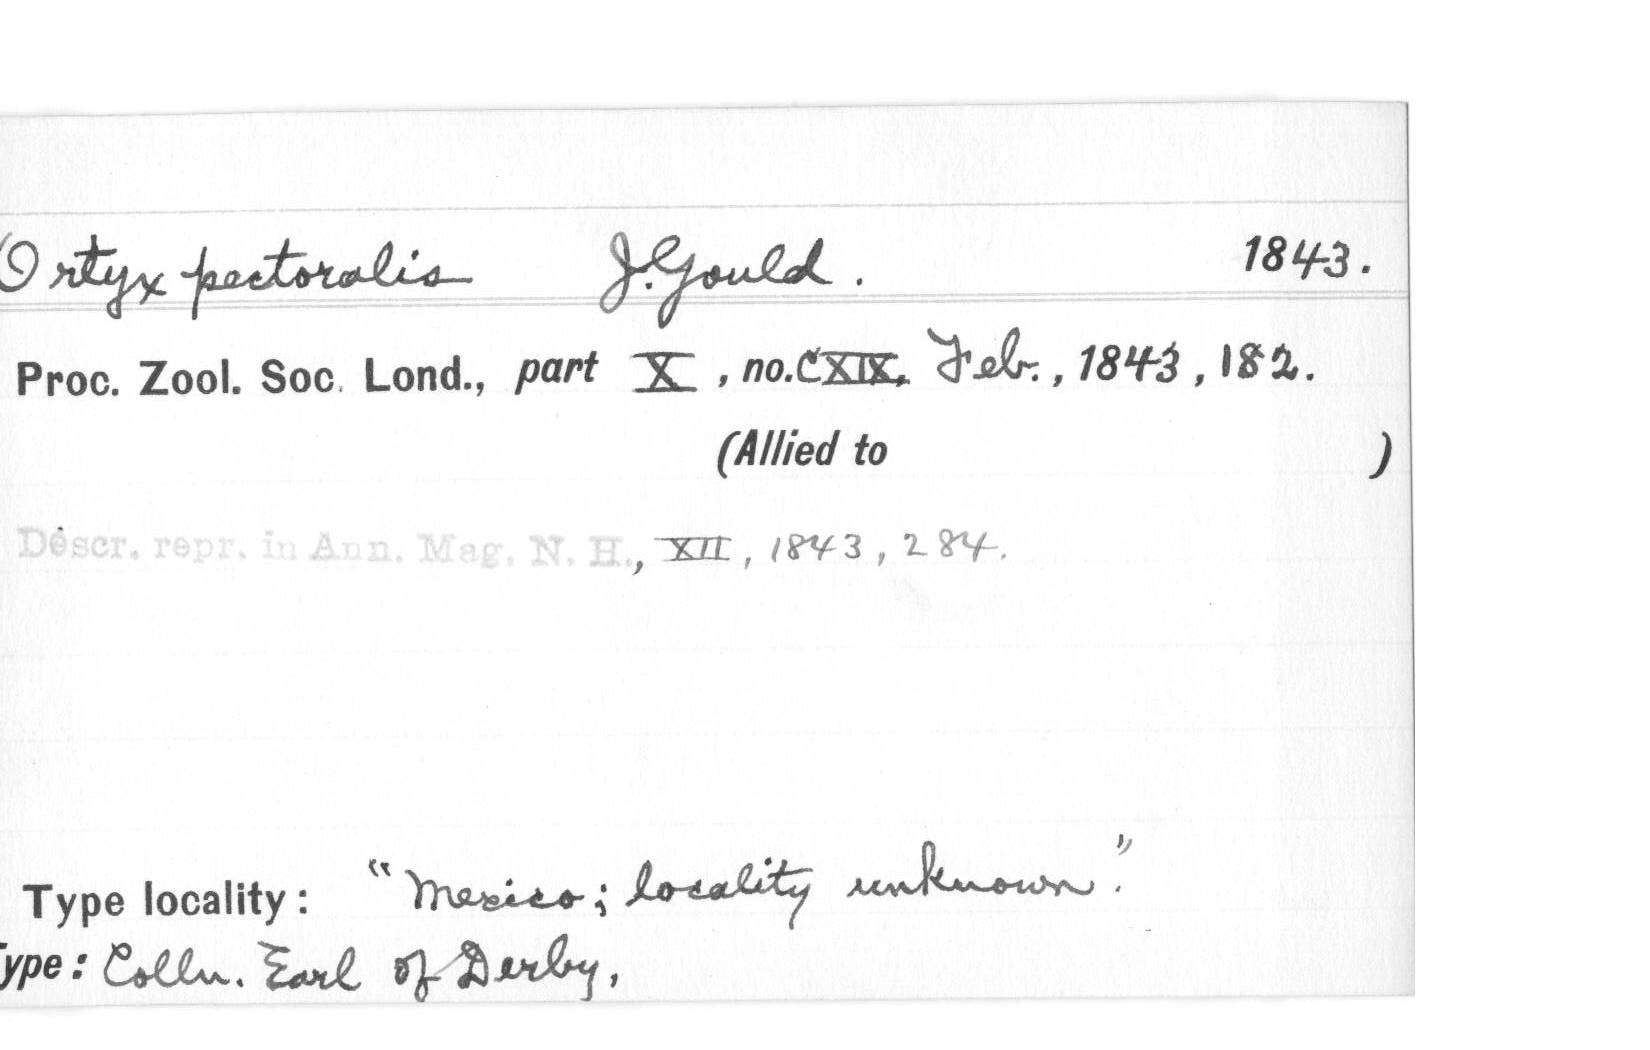 Ortyx pectoralis J. Gould. 1843.
Proc. Zool. Soc. Lond., part X, no. CXIX, Feb., 1843, 182.
(Allied to )
Descr. repr. in Ann. Mag. N. H., XII, 1843, 284.
Type locality: "Mexico; locality unknown".
Type: Colln. Earl of Derby,